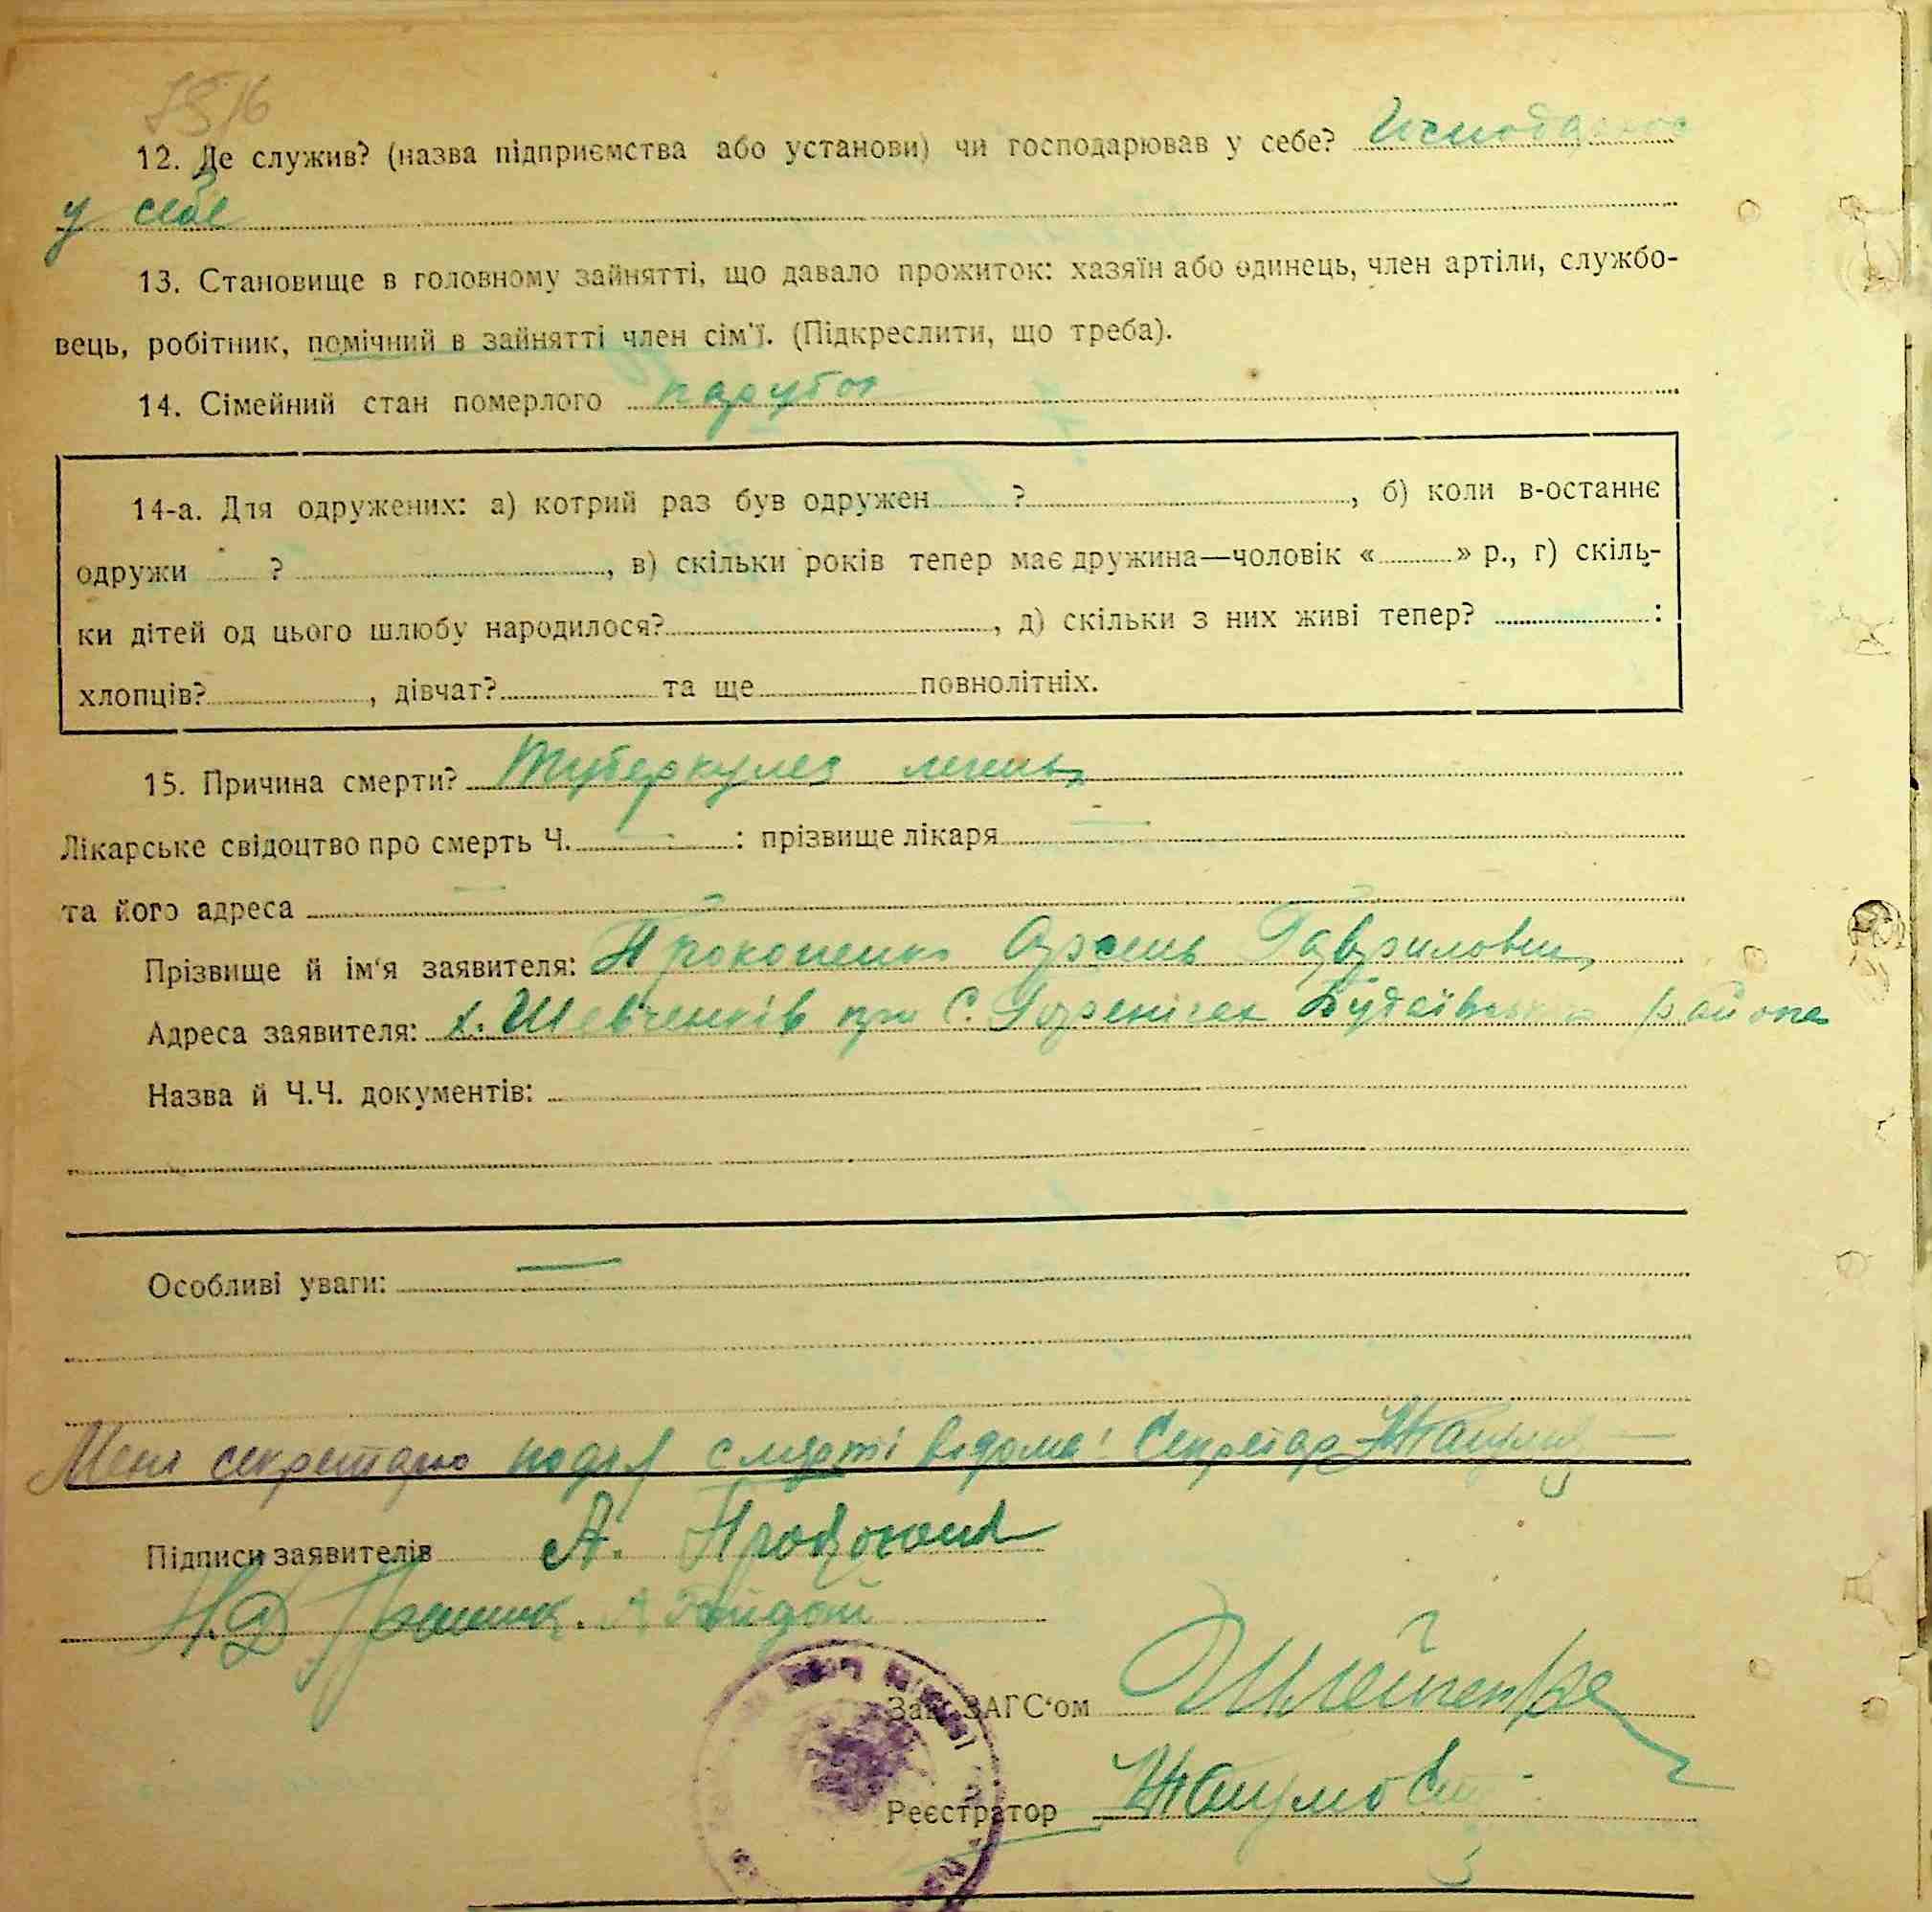 12. Де служив? (назва підприємства або установи) чи господарював у себе?
у себе
13. Становище в головному зайнятті, що давало прожиток: хазяїн або одинець, член артіли, службо-
вець, робітник, помічний в зайнятті член сім'ї. (Підкреслити, що треба).
14. Сімейний стан померлого парубок
14-а. Для одружених: а) котрий раз був одружен ? , б) коли в-останнє
одружи ? , в) скільки років тепер має дружина—чоловік « » р., г) скіль-
ки дітей од цього шлюбу народилося? , д) скільки з них живі тепер? :
хлопців? , дівчат? та ще повнолітніх.
15. Причина смерти? Туберкулез легень
Лікарське свідоцтво про смерть Ч. : прізвище лікаря
та його адреса
Прізвище й ім'я заявителя: Прокопенко Арсень Гаврилович
Адреса заявителя: х. Шевченків при С. Гореничах Будаївського району
Назва й Ч.Ч. документів:
Особливі уваги:
секретарю смерті відома: Секретар
Підписи заявителів А.
Зав. ЗАГС'ом
Реєстратор